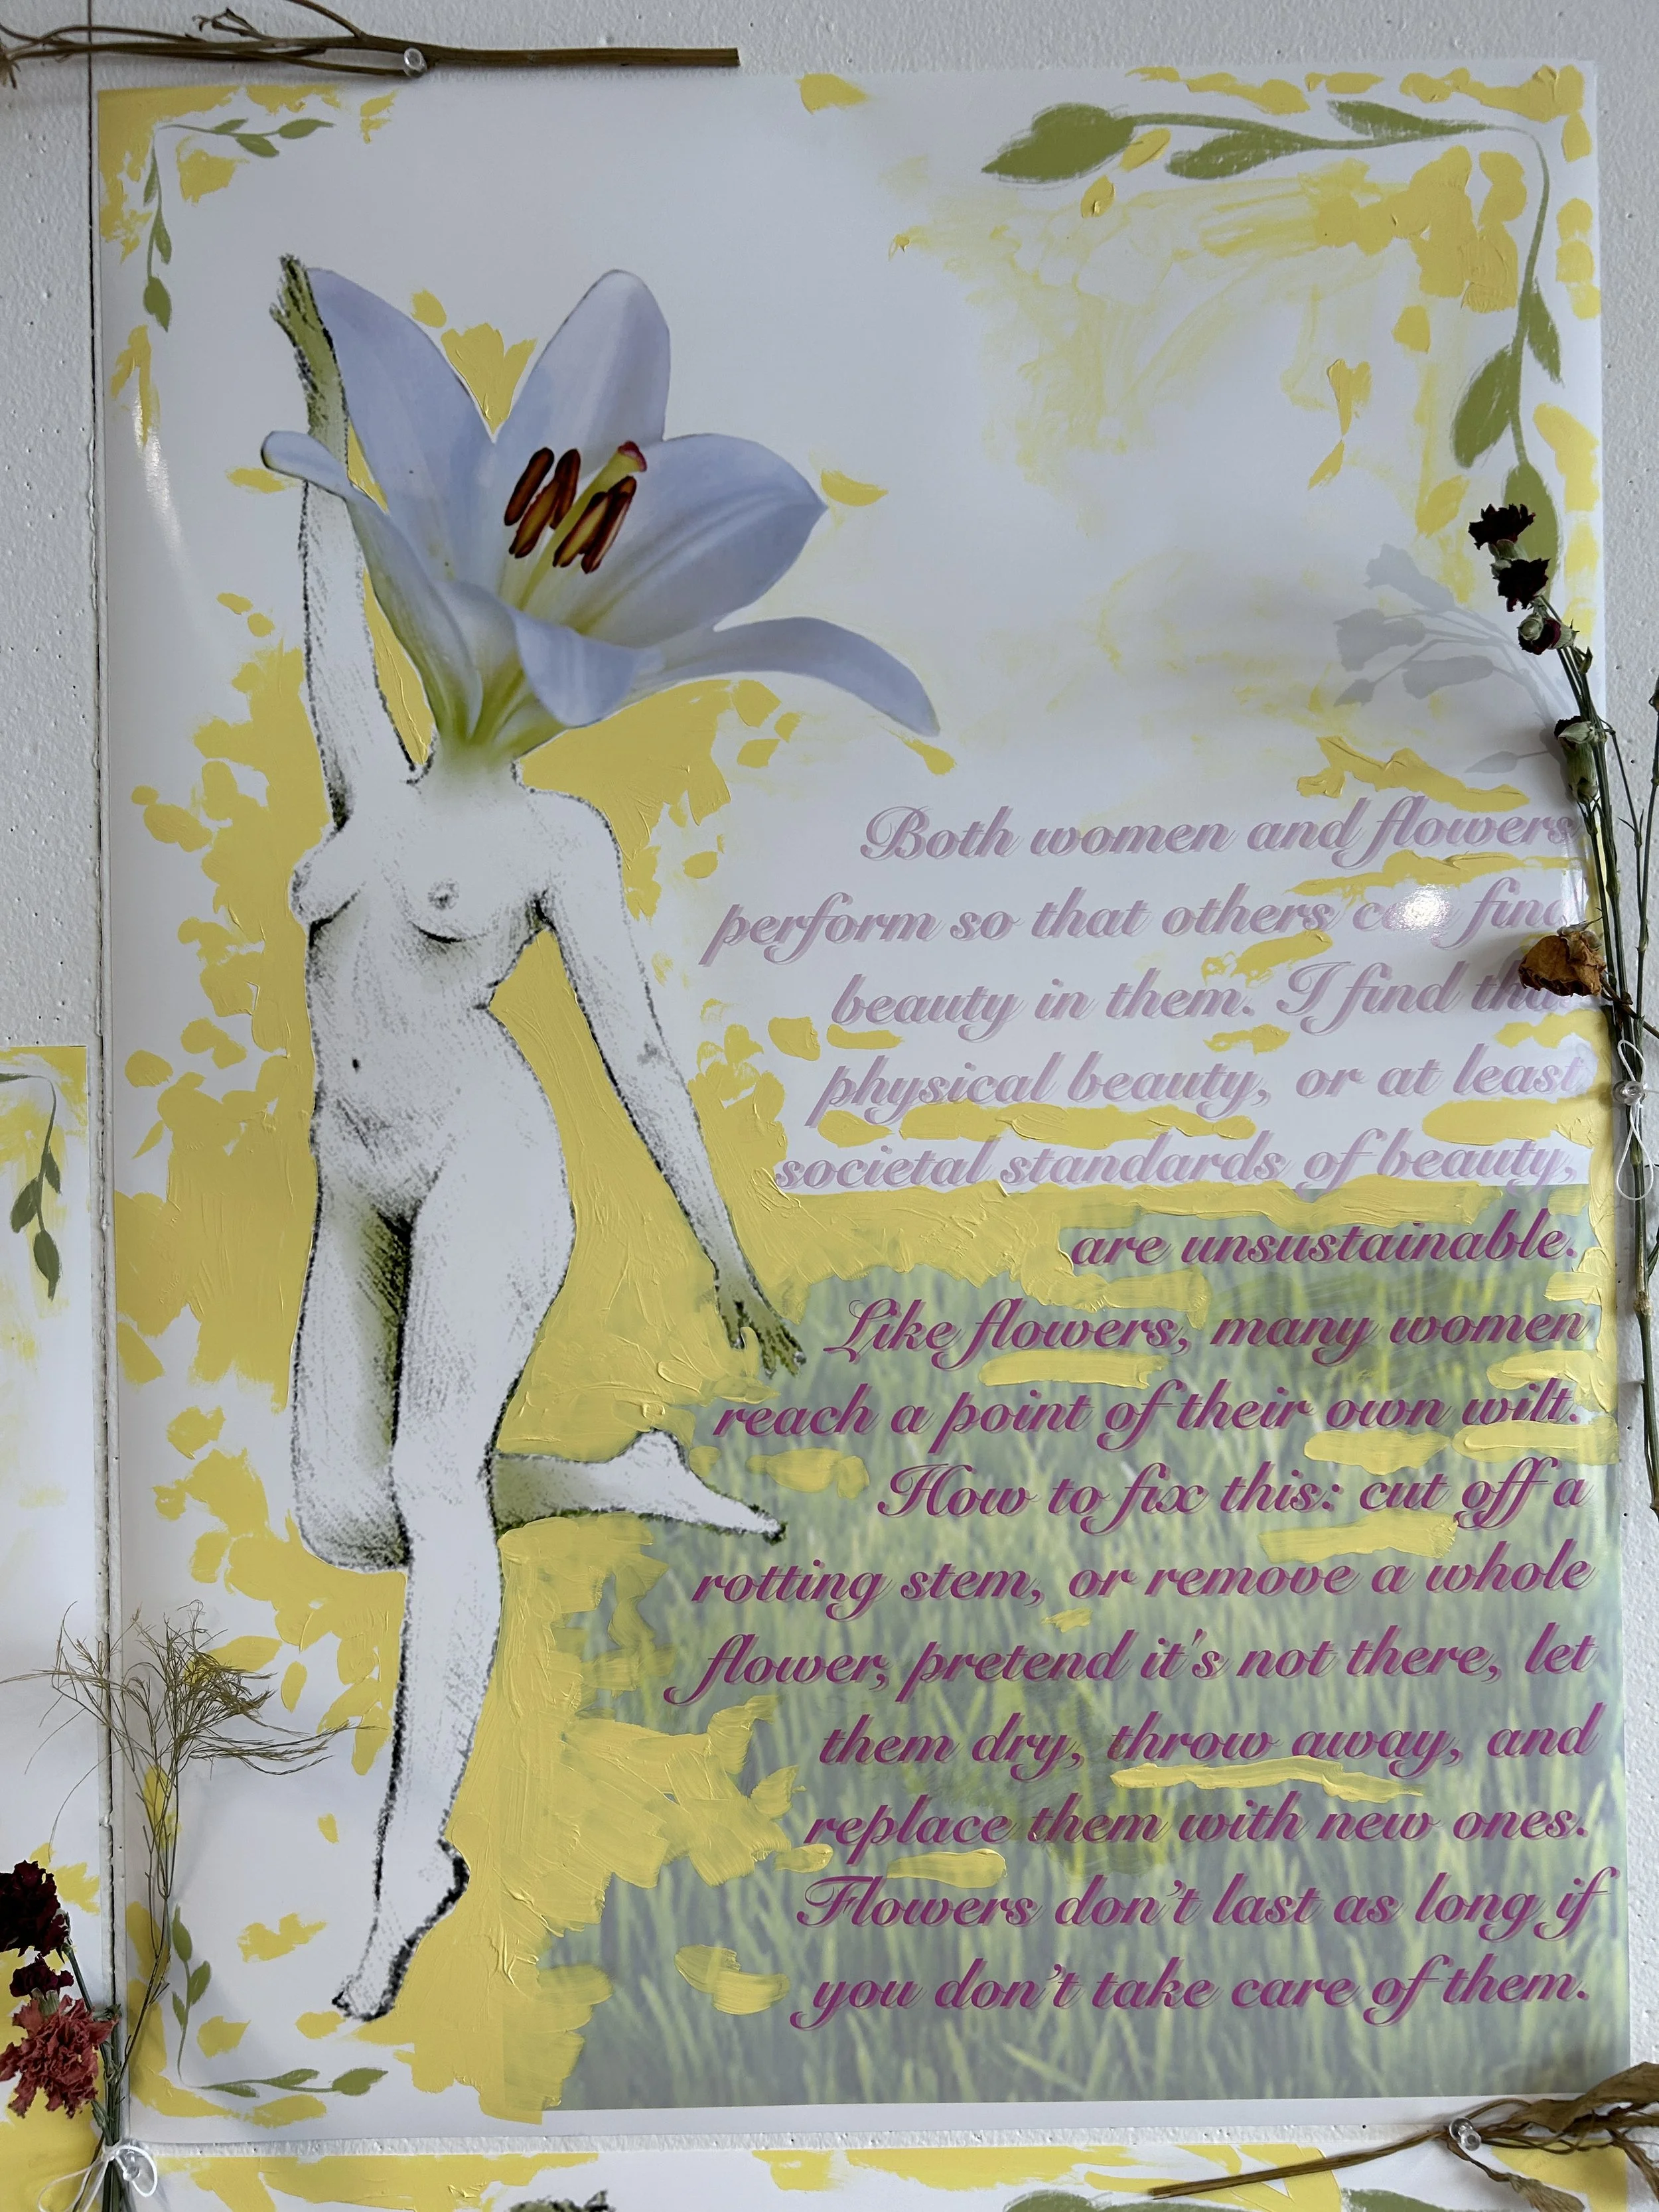 Both women and flowers
perform so that others can find
beauty in them. I find that
physical beauty, or at least
societal standards of beauty,
are unsustainable.
Like flowers, many women
reach a point of their own wilt.
How to fix this: cut off a
rotting stem, or remove a whole
flower, pretend it's not there, let
them dry, throw away, and
replace them with new ones.
Flowers don't last as long if
you don't take care of them.